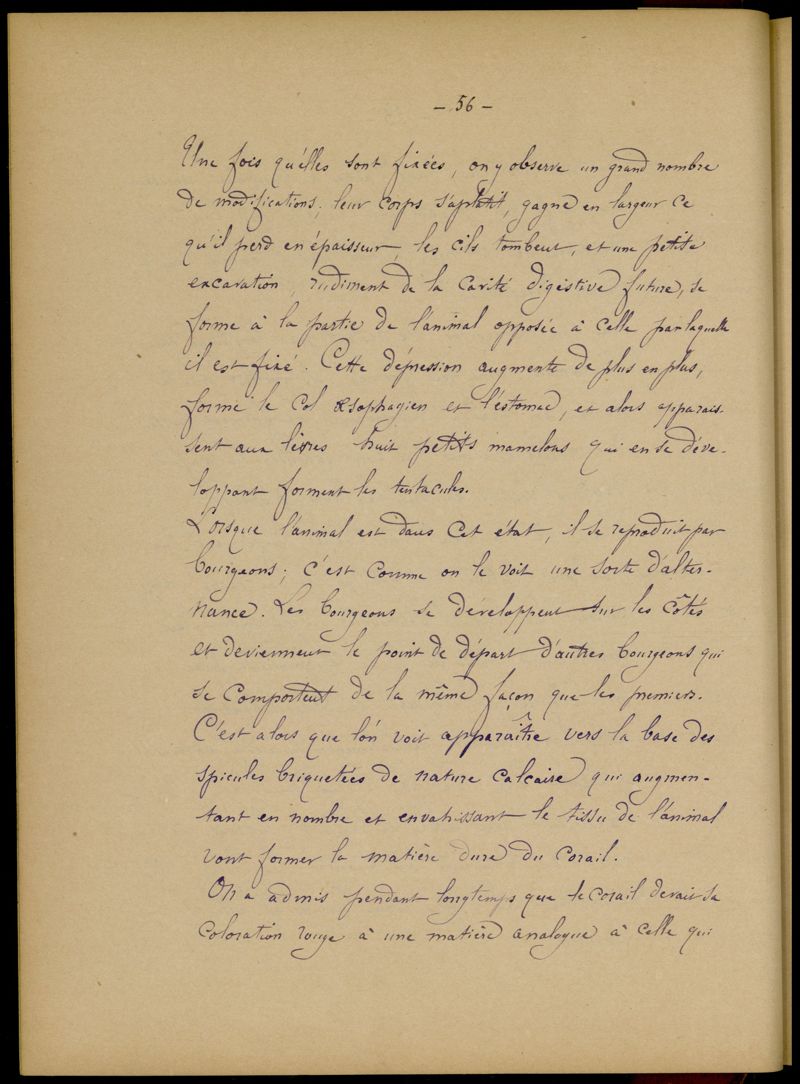 - 56 -
Une fois qu'elles sont fixées, on y observe un grand nombre
de modifications; leur corps s'aplatit, gagne en largeur ce
qu'il perd en épaisseur, les cils tombent, et une petite
excavation, rudiment de la cavité digestive future, se
forme à la partie de l'animal opposée à celle par laquelle
il est fixé. Cette dépression augmente de plus en plus,
forme le col œsophagien et l'estomac, et alors apparais-
sent aux lèvres huit petits mamelons qui en se déve-
loppant forment les tentacules.
Lorsque l'animal est dans cet état, il se reproduit par
bourgeons; c'est comme on le voit une sorte d'alter-
nance. Les bourgeons se développent sur les côtés
et deviennent le point de départ d'autres bourgeons qui
se comportent de la même façon que les premiers.
C'est alors que l'on voit apparaître vers la base des
spicules briquetées de nature calcaire qui augmen-
tant en nombre et envahissant le tissu de l'animal
vont former la matière dure du corail.
On a admis pendant longtemps que le corail devait sa
coloration rouge à une matière analogue à celle qui